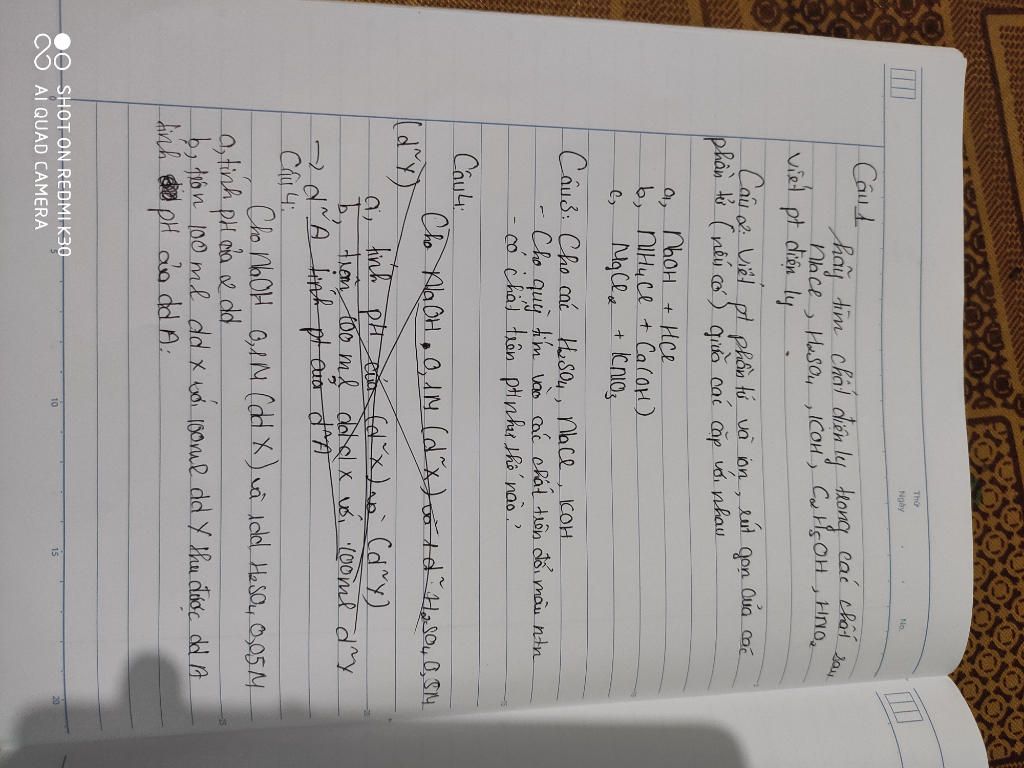 Thứ
Ngày
No.
Câu 1
hãy tìm chất điện ly trong các chất sau
NaCl, H₂SO₄, KOH, C₂H₅OH, HNO₂
viết pt điện ly
Câu 2: Viết pt phân tử và ion, rút gọn của các
phân tử (nếu có) giữa các cặp với nhau
a, NaOH + HCl
b, NH₄Cl + Ca(OH)
c, MgCl₂ + KNO₃
Câu 3: Cho các H₂SO₄, NaCl, KOH
- Cho quỳ tím vào các chất trên đổi màu ntn
- có chất trên pt như thế nào?
Câu 4:
Cho NaOH 0,1M (d² X) và 1 d² H₂SO₄ 0,5M
(d² Y)
a, tính pH của (d² X) và (d² Y)
b, trộn 100ml dd X với 100ml d² Y
→ d² A tính pt của d² A
Câu 4:
Cho NaOH 0,1M (dd X) và 1dd H₂SO₄ 0,05M
a, tính pH của 2 dd
b, trộn 100 ml dd X với 100ml dd Y thu được dd A
tính pH của dd A:
SHOT ON REDMI K30
AI QUAD CAMERA
0 5 10 15 20